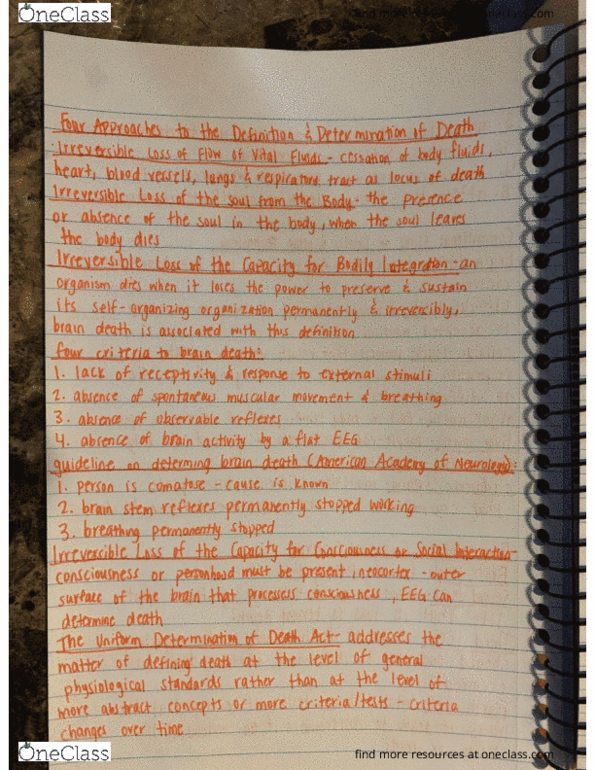 OneClass
find more resources at oneclass.com
Four Approaches to the Definition & Determination of Death
· Irreversible Loss of Flow of Vital Fluids - cessation of body fluids,
heart, blood vessels, lungs & respiratory tract as locus of death
Irreversible Loss of the soul from the Body - the presence
or absence of the soul in the body, when the soul leaves
the body dies
Irreversible Loss of the Capacity for Bodily Integration - an
organism dies when it loses the power to preserve & sustain
its self-organizing organization permanently & irreversibly,
brain death is associated with this definition
four criteria to brain death:
1. lack of receptivity & response to external stimuli
2. absence of spontaneous muscular movement & breathing
3. absence of observable reflexes
4. absence of brain activity by a flat EEG
guideline on determing brain death (American Academy of Neurology):
1. person is comatose - cause is known
2. brain stem reflexes permanently stopped working
3. breathing permanently stopped
Irreversible Loss of the Capacity for Consciousness or Social Interaction -
consciousness or personhood must be present, neocortex - outer
surface of the brain that processes consciousness, EEG can
determine death
The Uniform Determination of Death Act - addresses the
matter of defining death at the level of general
physiological standards rather than at the level of
more abstract concepts or more criteria/tests - criteria
changes over time
OneClass
find more resources at oneclass.com